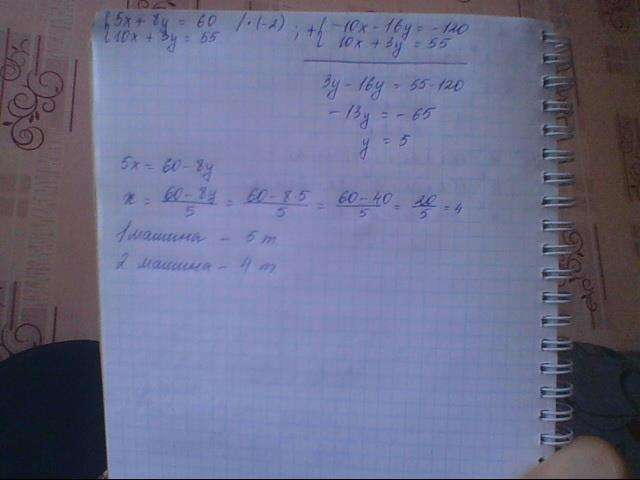 {5x + 8y = 60 /·(-2) ; +{-10x - 16y = -120
{10x + 3y = 55 10x + 3y = 55
3y - 16y = 55 - 120
-13y = -65
y = 5
5x = 60 - 8y
x = (60 - 8y)/5 = (60 - 8·5)/5 = (60 - 40)/5 = 20/5 = 4
1 машина - 5 т
2 машина - 4 т